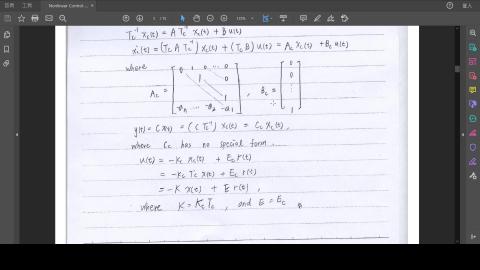 Nonlinear Control ...
登入
Tc⁻¹ ẋc(t) = A Tc⁻¹ xc(t) + B u(t)
ẋc(t) = (Tc A Tc⁻¹) xc(t) + (Tc B) u(t) = Ac xc(t) + Bc u(t)
where
Ac = [ 0 1 0 ... 0
1 0
1
-an ... -a2 -a1 ] , Bc = [ 0 0 ⋮ 1 ]
y(t) = C x(t) = (C Tc⁻¹) xc(t) = Cc xc(t) .
where Cc has no special form.
u(t) = -Kc xc(t) + Ec r(t)
= -Kc Tc x(t) + Ec r(t)
= -K x(t) + E r(t) ,
where K = Kc Tc , and E = Ec